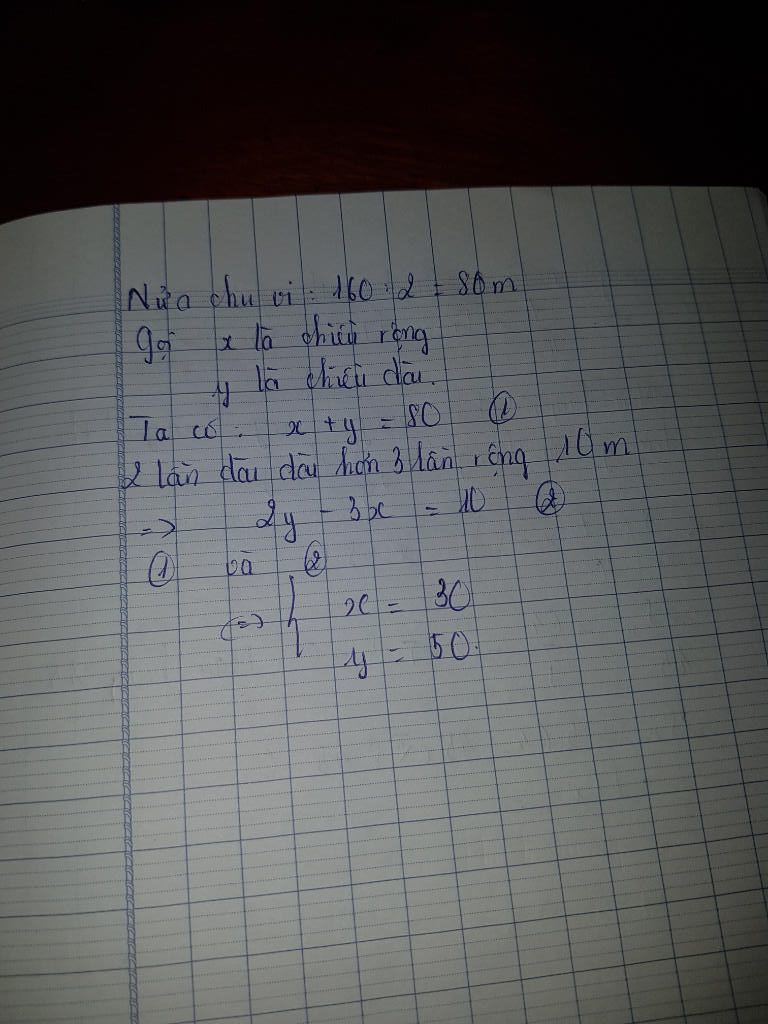 Nửa chu vi : 160 : 2 = 80 m
Gọi x là chiều rộng
y là chiều dài.
Ta có : x + y = 80 ①
2 lần dài dài hơn 3 lần rộng 10 m
=> 2y - 3x = 10 ②
① và ②
(=> { x = 30
y = 50.